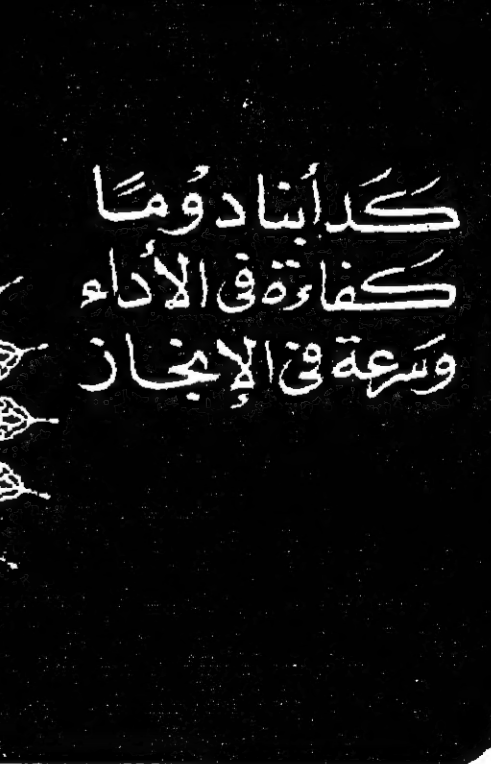 كَدَأبنا دوُمًا
كفاءة فى الأداء
وسَرعة فى الإنجاز